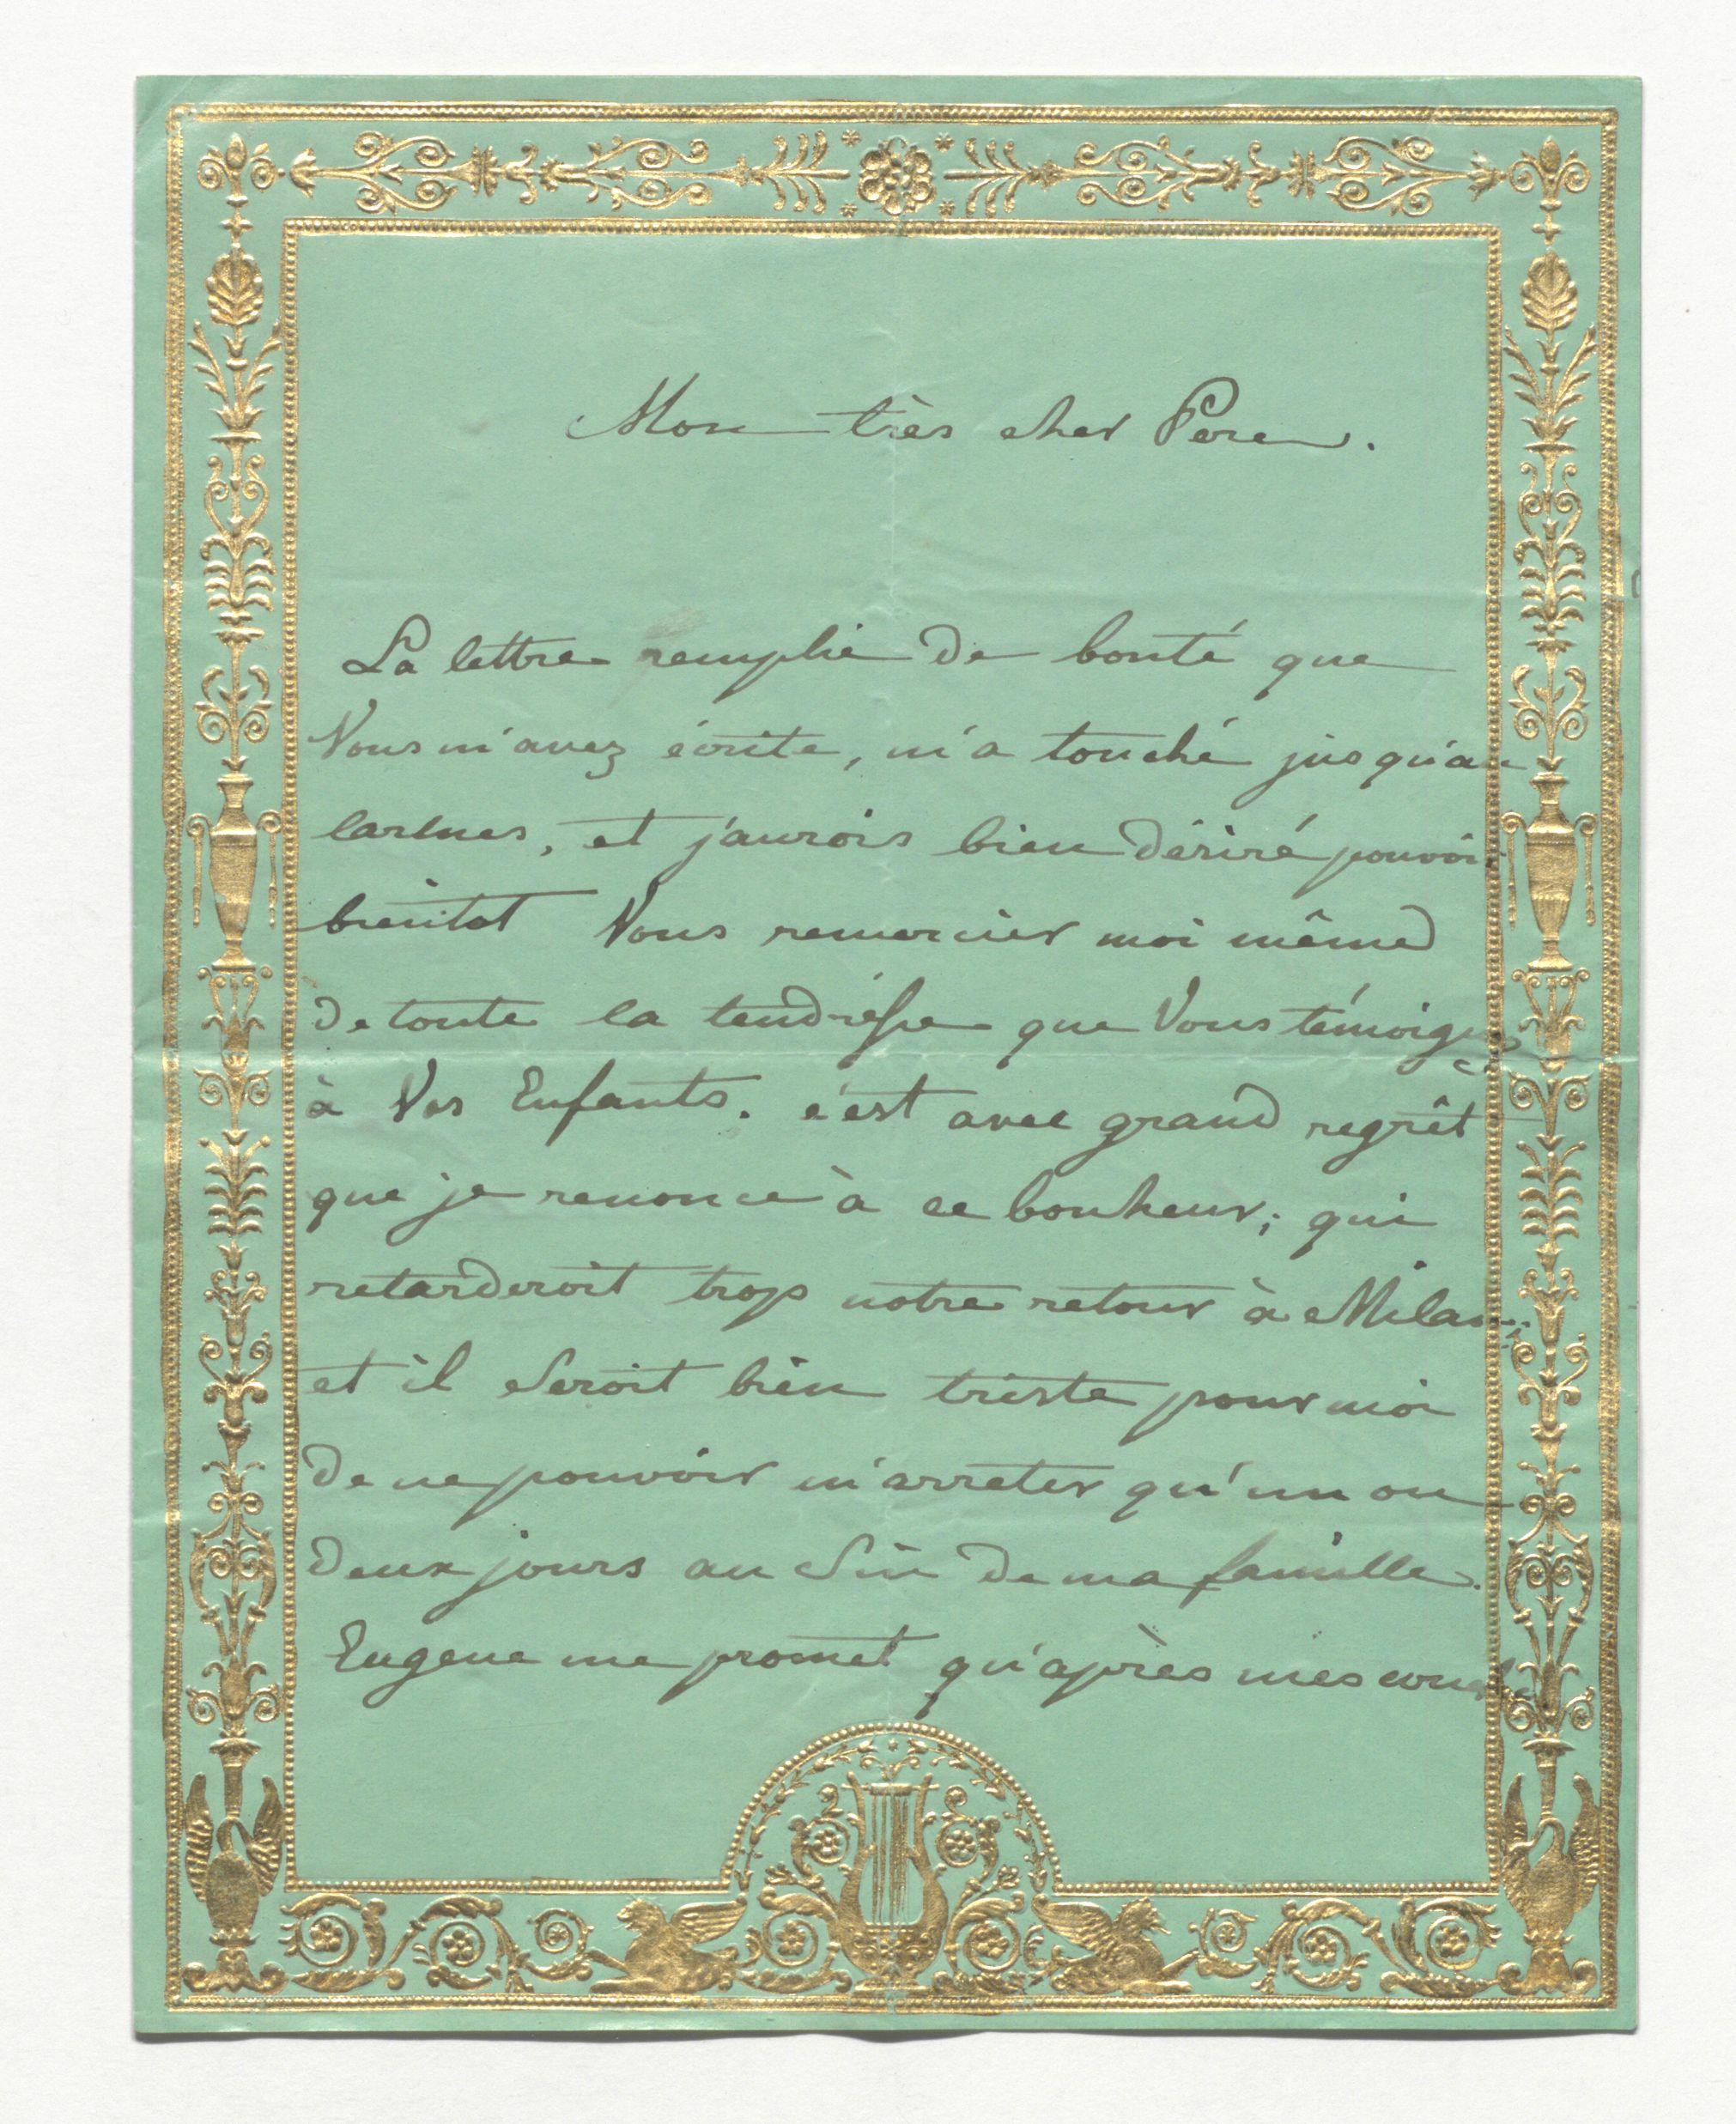 Mon très cher Pere.
La lettre remplie de bonté que
Vous m'avez écrite, m'a touché jusqu'au
larmes, et j'aurois bien désiré pouvoir
bientot Vous remercier moi même
de toute la tendresse que Vous témoignez
à Vos Enfants. c'est avec grand regrêt
que je renonce à ce bonheur; qui
retarderoit trop notre retour à Milan;
et il seroit bien triste pour moi
de ne pouvoir m'arreter qu'un ou
deux jours au sein de ma famille.
Eugene me promet qu'après mes couches